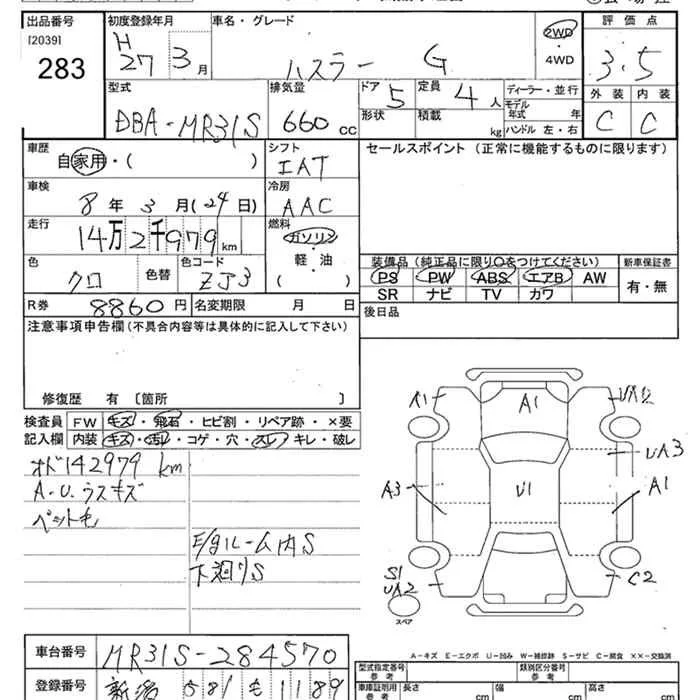 出品番号
[2039]
283
初度登録年月
H
27 3月
車名・グレード
ハスラー G
2WD
・
4WD
評価点
3.5
外装 内装
C C
型式
DBA-MR31S
排気量
660 cc
ドア 5
形状
定員 4人
積載 kg
ディーラー・並行
モデル年式 年
ハンドル 左・右
車歴
自家用・( )
シフト
IAT
セールスポイント (正常に機能するものに限ります)
車検
8年 3月(24日)
冷房
AAC
走行
14万2千979km
燃料
ガソリン
軽・油
( )
色
クロ
色替
色コード
ZJ3
装備品(純正品に限り○をつけてください)
PS PW ABS エアB AW
SR ナビ TV カワ
新車保証書
有・無
R券 8860円
名変期限 月 日
後日品
注意事項申告欄(不具合内容等は具体的に記入して下さい)
修復歴 有 〔箇所 〕
検査員記入欄
FW キズ・飛石・ヒビ割・リペア跡・×要
内装 キズ・汚レ・コゲ・穴・スレ・キレ・破レ
オド142979km
A.U.ウスキズ
ペット毛
E/gルーム内S
下廻りS
A1
A1
UA2
UA3
A3
U1
A1
S1
UA2
C2
スペア
A-キズ E-エクボ U-凹み W-補修跡 S-サビ C-腐食 ××-交換済
車台番号
MR31S-284570
登録番号
新潟 581 も 1189
型式指定番号
参考
類別区分番号
参考
車庫証明用
参考
長さ cm
幅 cm
高さ cm